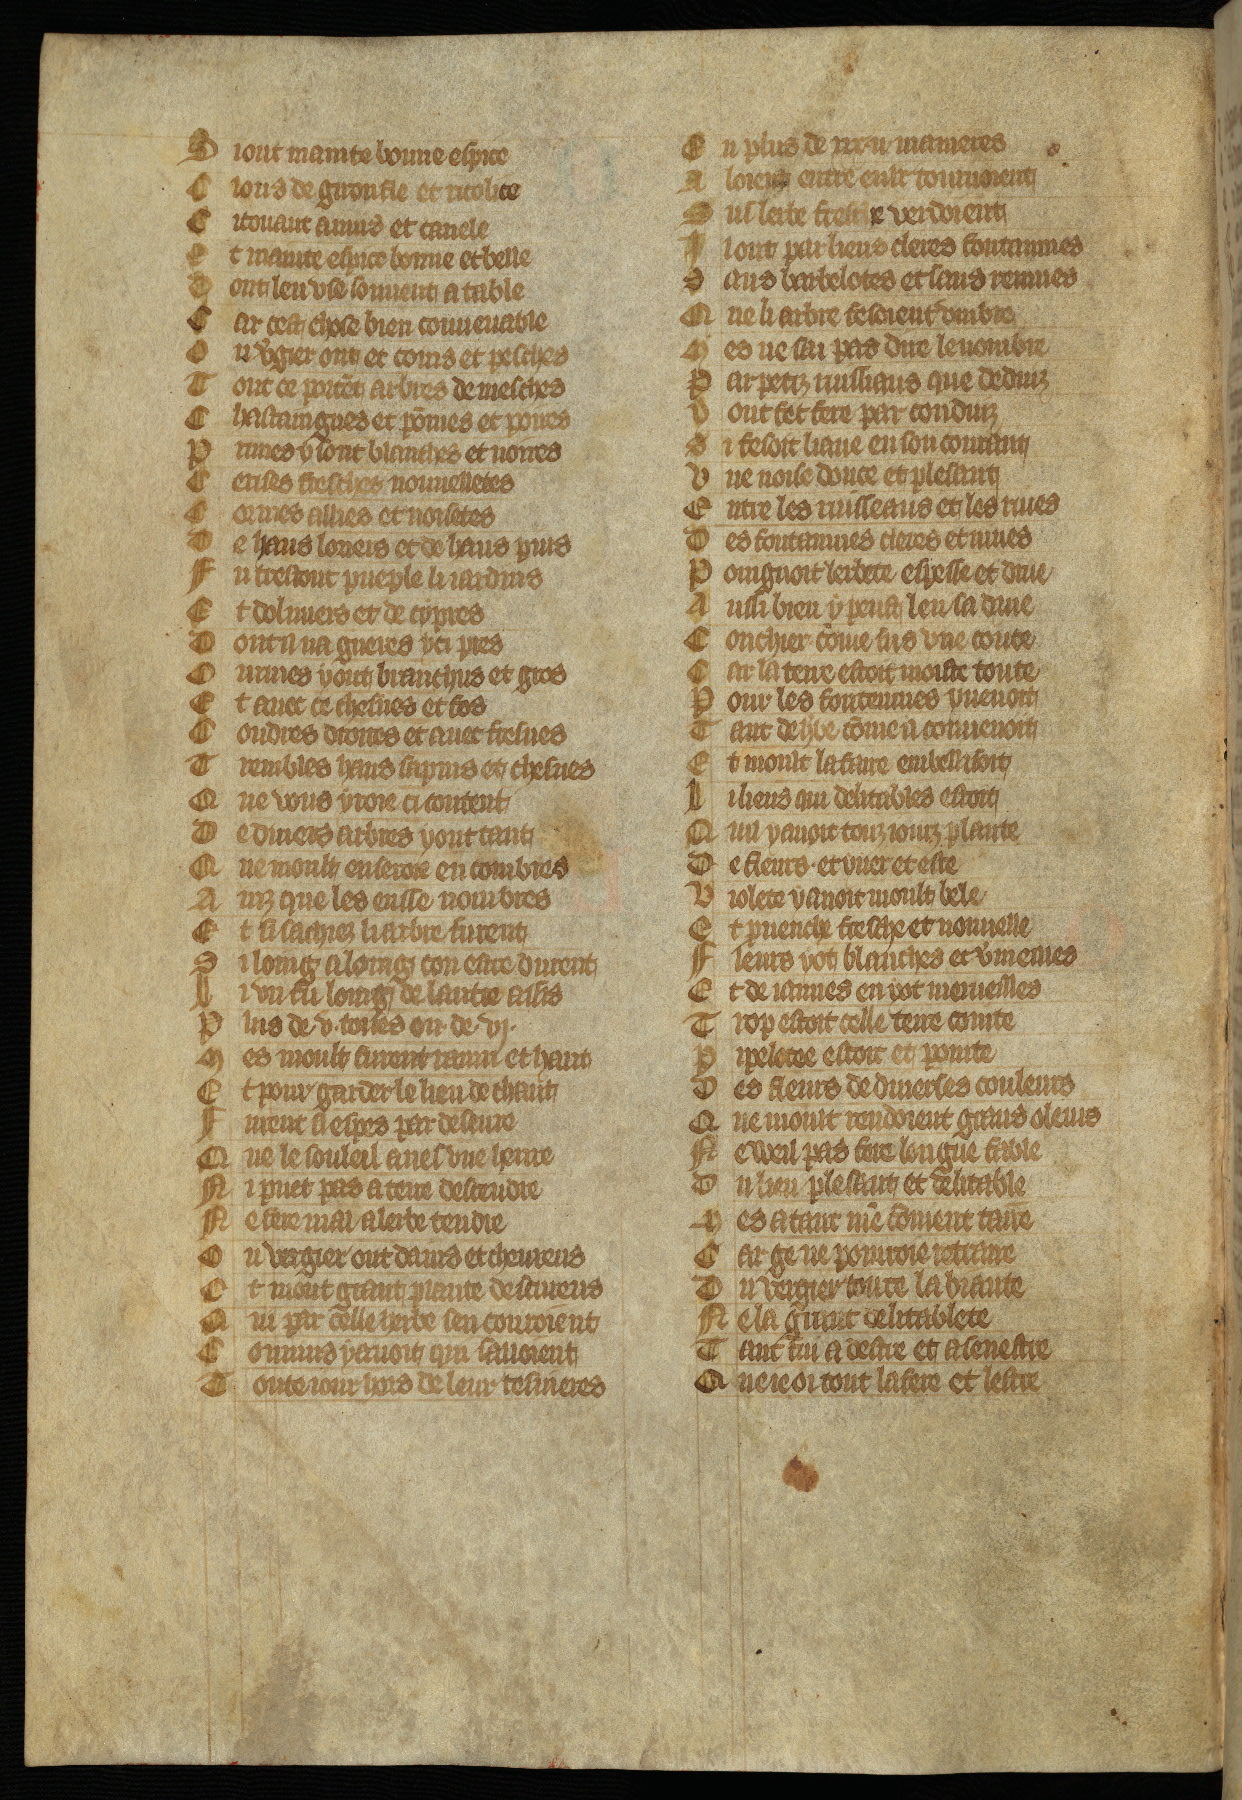 S iout mainte bonne espice
C lous de giroufle et ricolice
C itouaut anuis et canele
E t mainte espice bonne et belle
D ont len vse souuent a table
C ar cest chose bien conuenable
O u vgier ont et coins et pesches
T out ce portēt arbres de mesches
C hastaingnes et pōmes et poires
P runes y sont blanches et noires
C erises fresches nouuelletes
C ormes allies et noisetes
D e haus loriers et de haus pins
F u trestout pueple li iardins
E t doliuiers et de cypres
D ont il na gueres yci pres
O urmes yout branchus et gros
E t auec ce chesnes et fos
C oudres droites et auec fresnes
T rembles haus sapins et chesnes
Q ue vous yroie ci content
D e diuers arbres yout tant
Q ue moult enseroie en combres
A inz que les eusse nombres
E t si sachiez li arbre furent
S i loing a loing con estre durent
L i vn fu loing de lautre assis
P lus de .v. toises ou de .vj.
M es moult furent ramu et haut
E t pour garder le lieu de chaut
F urent si espes par deseure
Q ue le souleil a nesvne heure
N i puet pas a terre descendre
N e fere mal a lerbe tendre
O u vergier out dains et cheureus
E t mout grant plante descureus
Q ui par celle herbe sen couroient
C onnins yauoit qui sailloient
T oute iour hors de leur tesnieres
E n plus de xxx manieres
A loient entre eulx tournoient
S us lerbe fresche verdoient
I l out par lieus cleres fontainnes
S ans barbelotes et sans reinnes
Q ue li arbre fesoient ombre
M es ne sai pas dire le nombre
P ar petiz ruissiaus que deduiz
V out fet fere par conduiz
S i fesoit liaue en son courant
V ne noise douce et plesant
E ntre les ruisseaus et les riues
D es fontainnes cleres et uiues
P oingnoit lerbete espesse et drue
A ussi bien y peust len sa drue
C ouchier cōme sus vne coute
C ar la terre estoit moiste toute
P our les fontennes y venoit
T ant derbe cōme il conuenoit
E t moult lafaire embelissoit
L i lieus qui delitables estoit
Q uil yauoit touz iourz plante
D e fleurs et yuer et este
V iolete y auoit moult bele
E t puenche fresche et nouuelle
F leurs yot blanches et vmeilles
E t de iaunes en yot merueilles
T rop estoit celle terre cointe
P ipelotee estoit et pointe
D es fleurs de diuerses couleurs
Q ue moult rendoient grans oleurs
N e weil pas fere longue fable
D u lieu plesant et delitable
M es atant me couient taire
C ar ge ne pourroie retraire
D u vergier toute la biaute
N e la grant delitablete
T ant fui a destre et a senestre
Q ue ie oi tout lafere et lestre